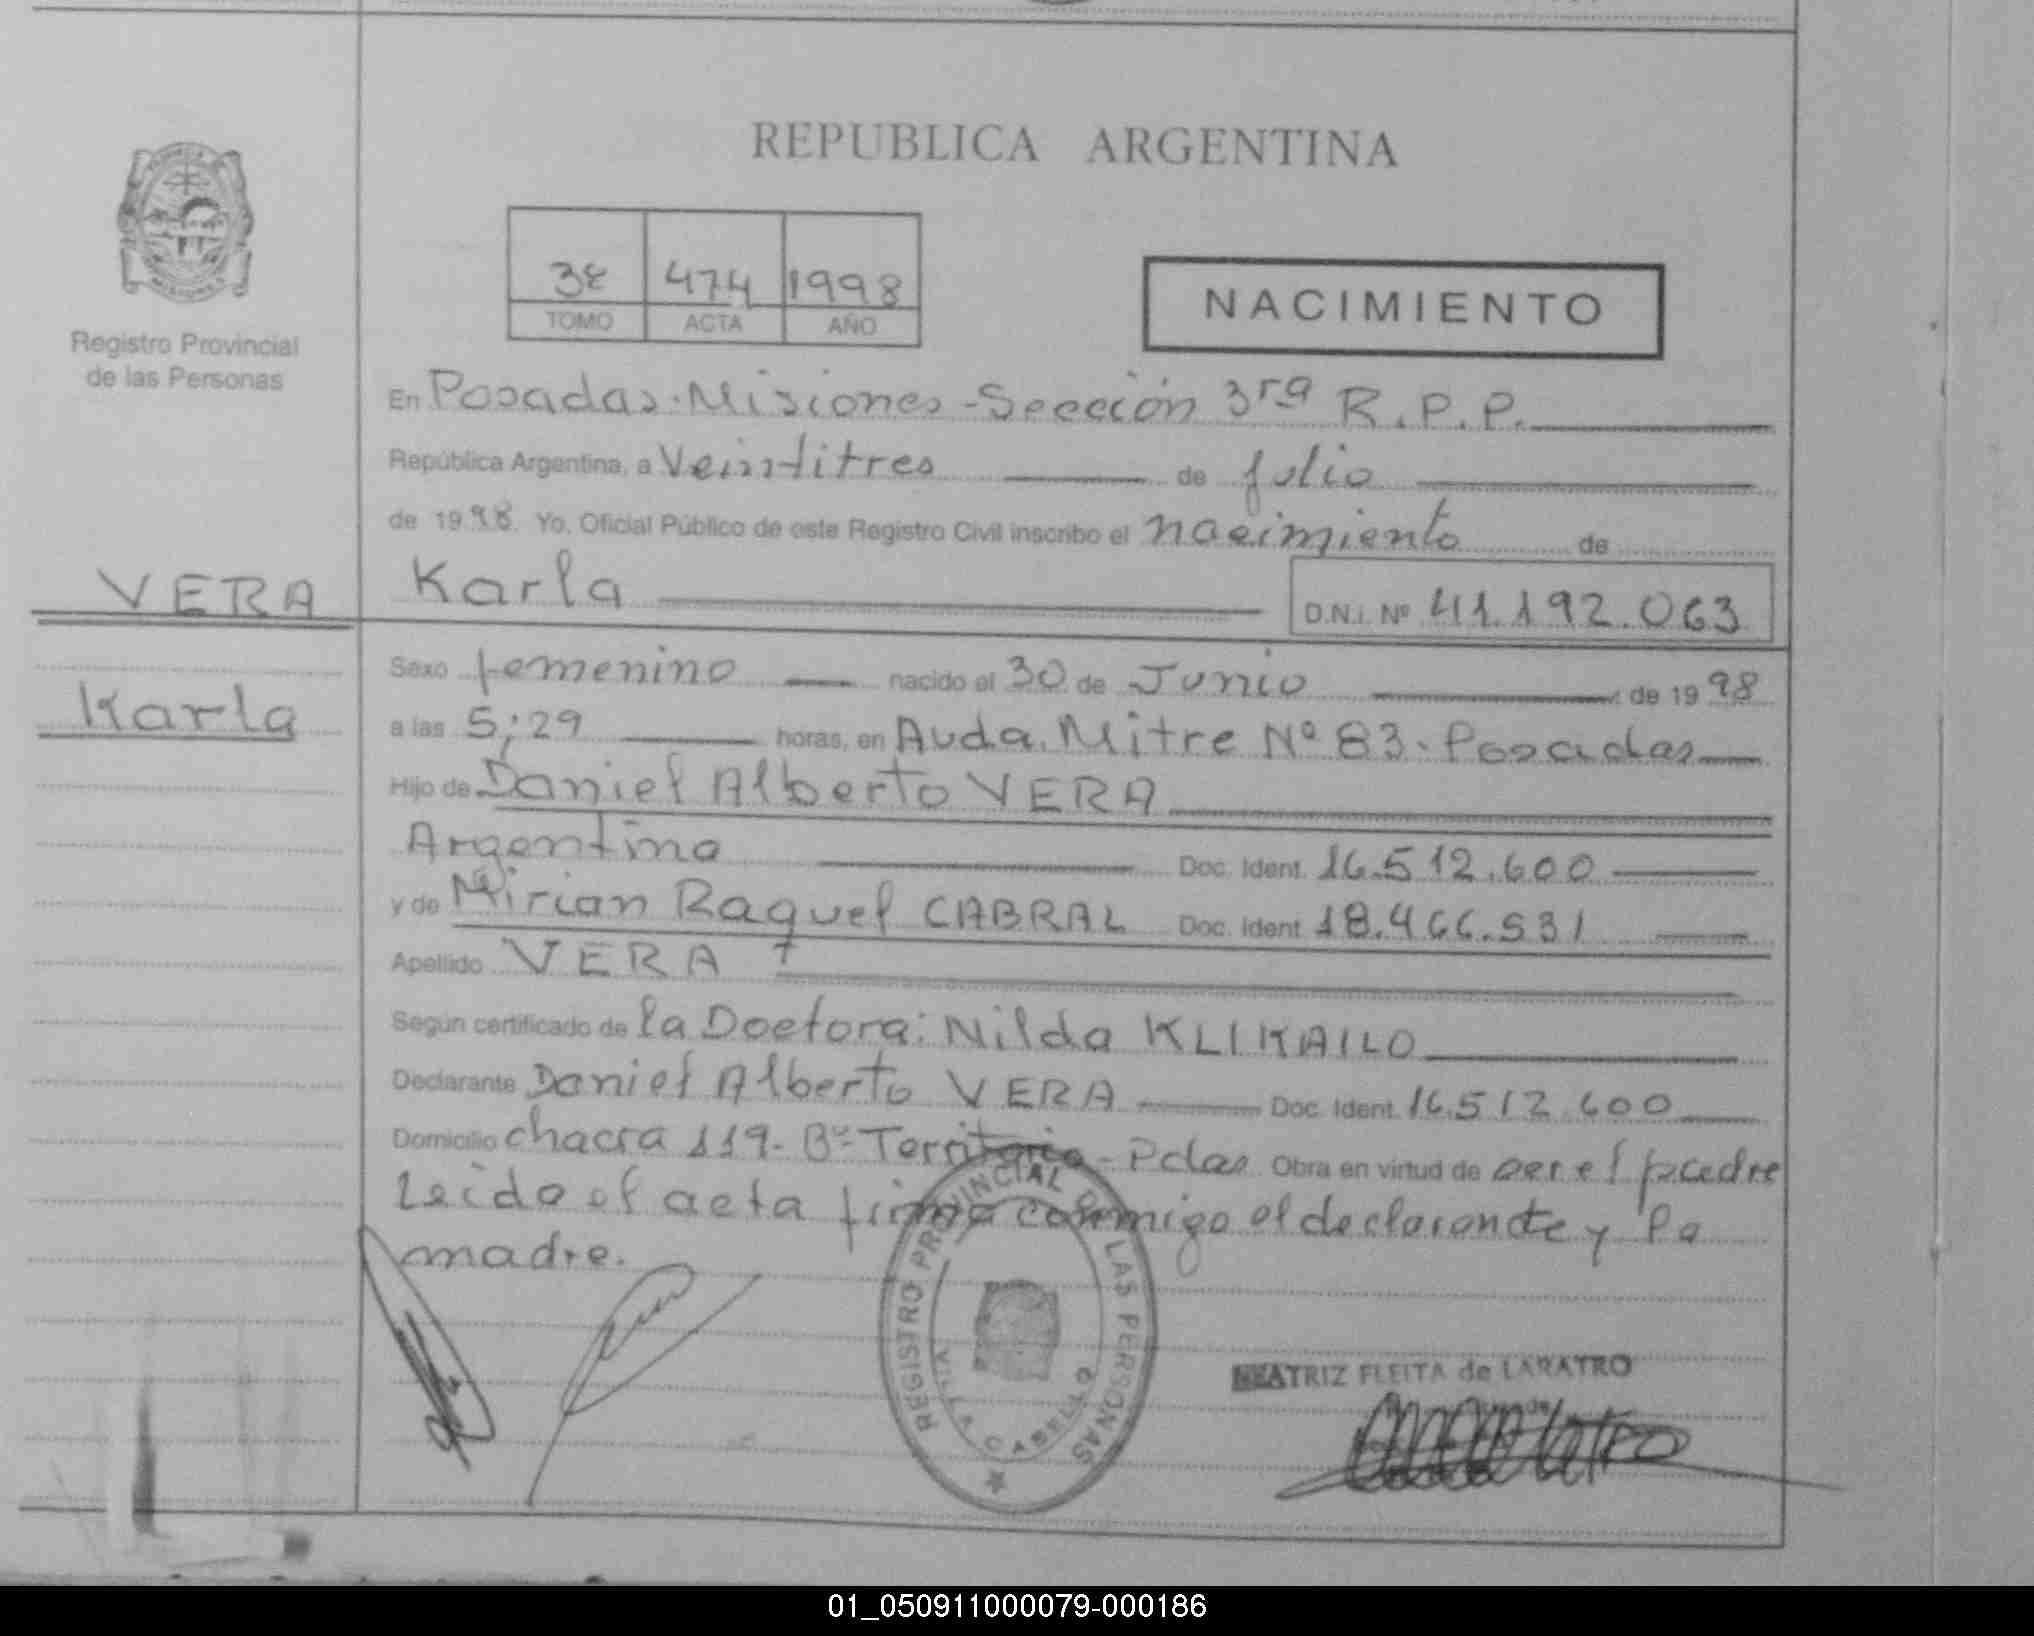 REPUBLICA ARGENTINA
Registro Provincial
de las Personas
474 1998
TOMO ACTA AÑO
NACIMIENTO
En Posadas. Misiones - Sección 3ra R.P.P.
República Argentina, a Veintitres de julio
de 1998. Yo, Oficial Público de este Registro Civil inscribo el nacimiento de
VERA
Karla
Karla D.N.I. Nº 41.192.063
Sexo femenino nacido el 30 de Junio de 1998
a las 5;29 horas, en Avda. Mitre Nº 83. Posadas
Hijo de Daniel Alberto VERA
Argentina Doc. Ident. 16.512.600
y de Mirian Raquel CABRAL Doc. Ident. 18.466.531
Apellido VERA
Según certificado de la Doctora: Nilda KLIKAILO
Declarante Daniel Alberto VERA Doc. Ident. 16.512.600
Domicilio chacra 119- Bº Territorio - Pdas Obra en virtud de ser el padre
Leido el acta firma conmigo el declarante y la
madre.
REGISTRO PROVINCIAL DE LAS PERSONAS
VILLA CABELLO
BEATRIZ FLEITA de LARATRO
01_050911000079-000186